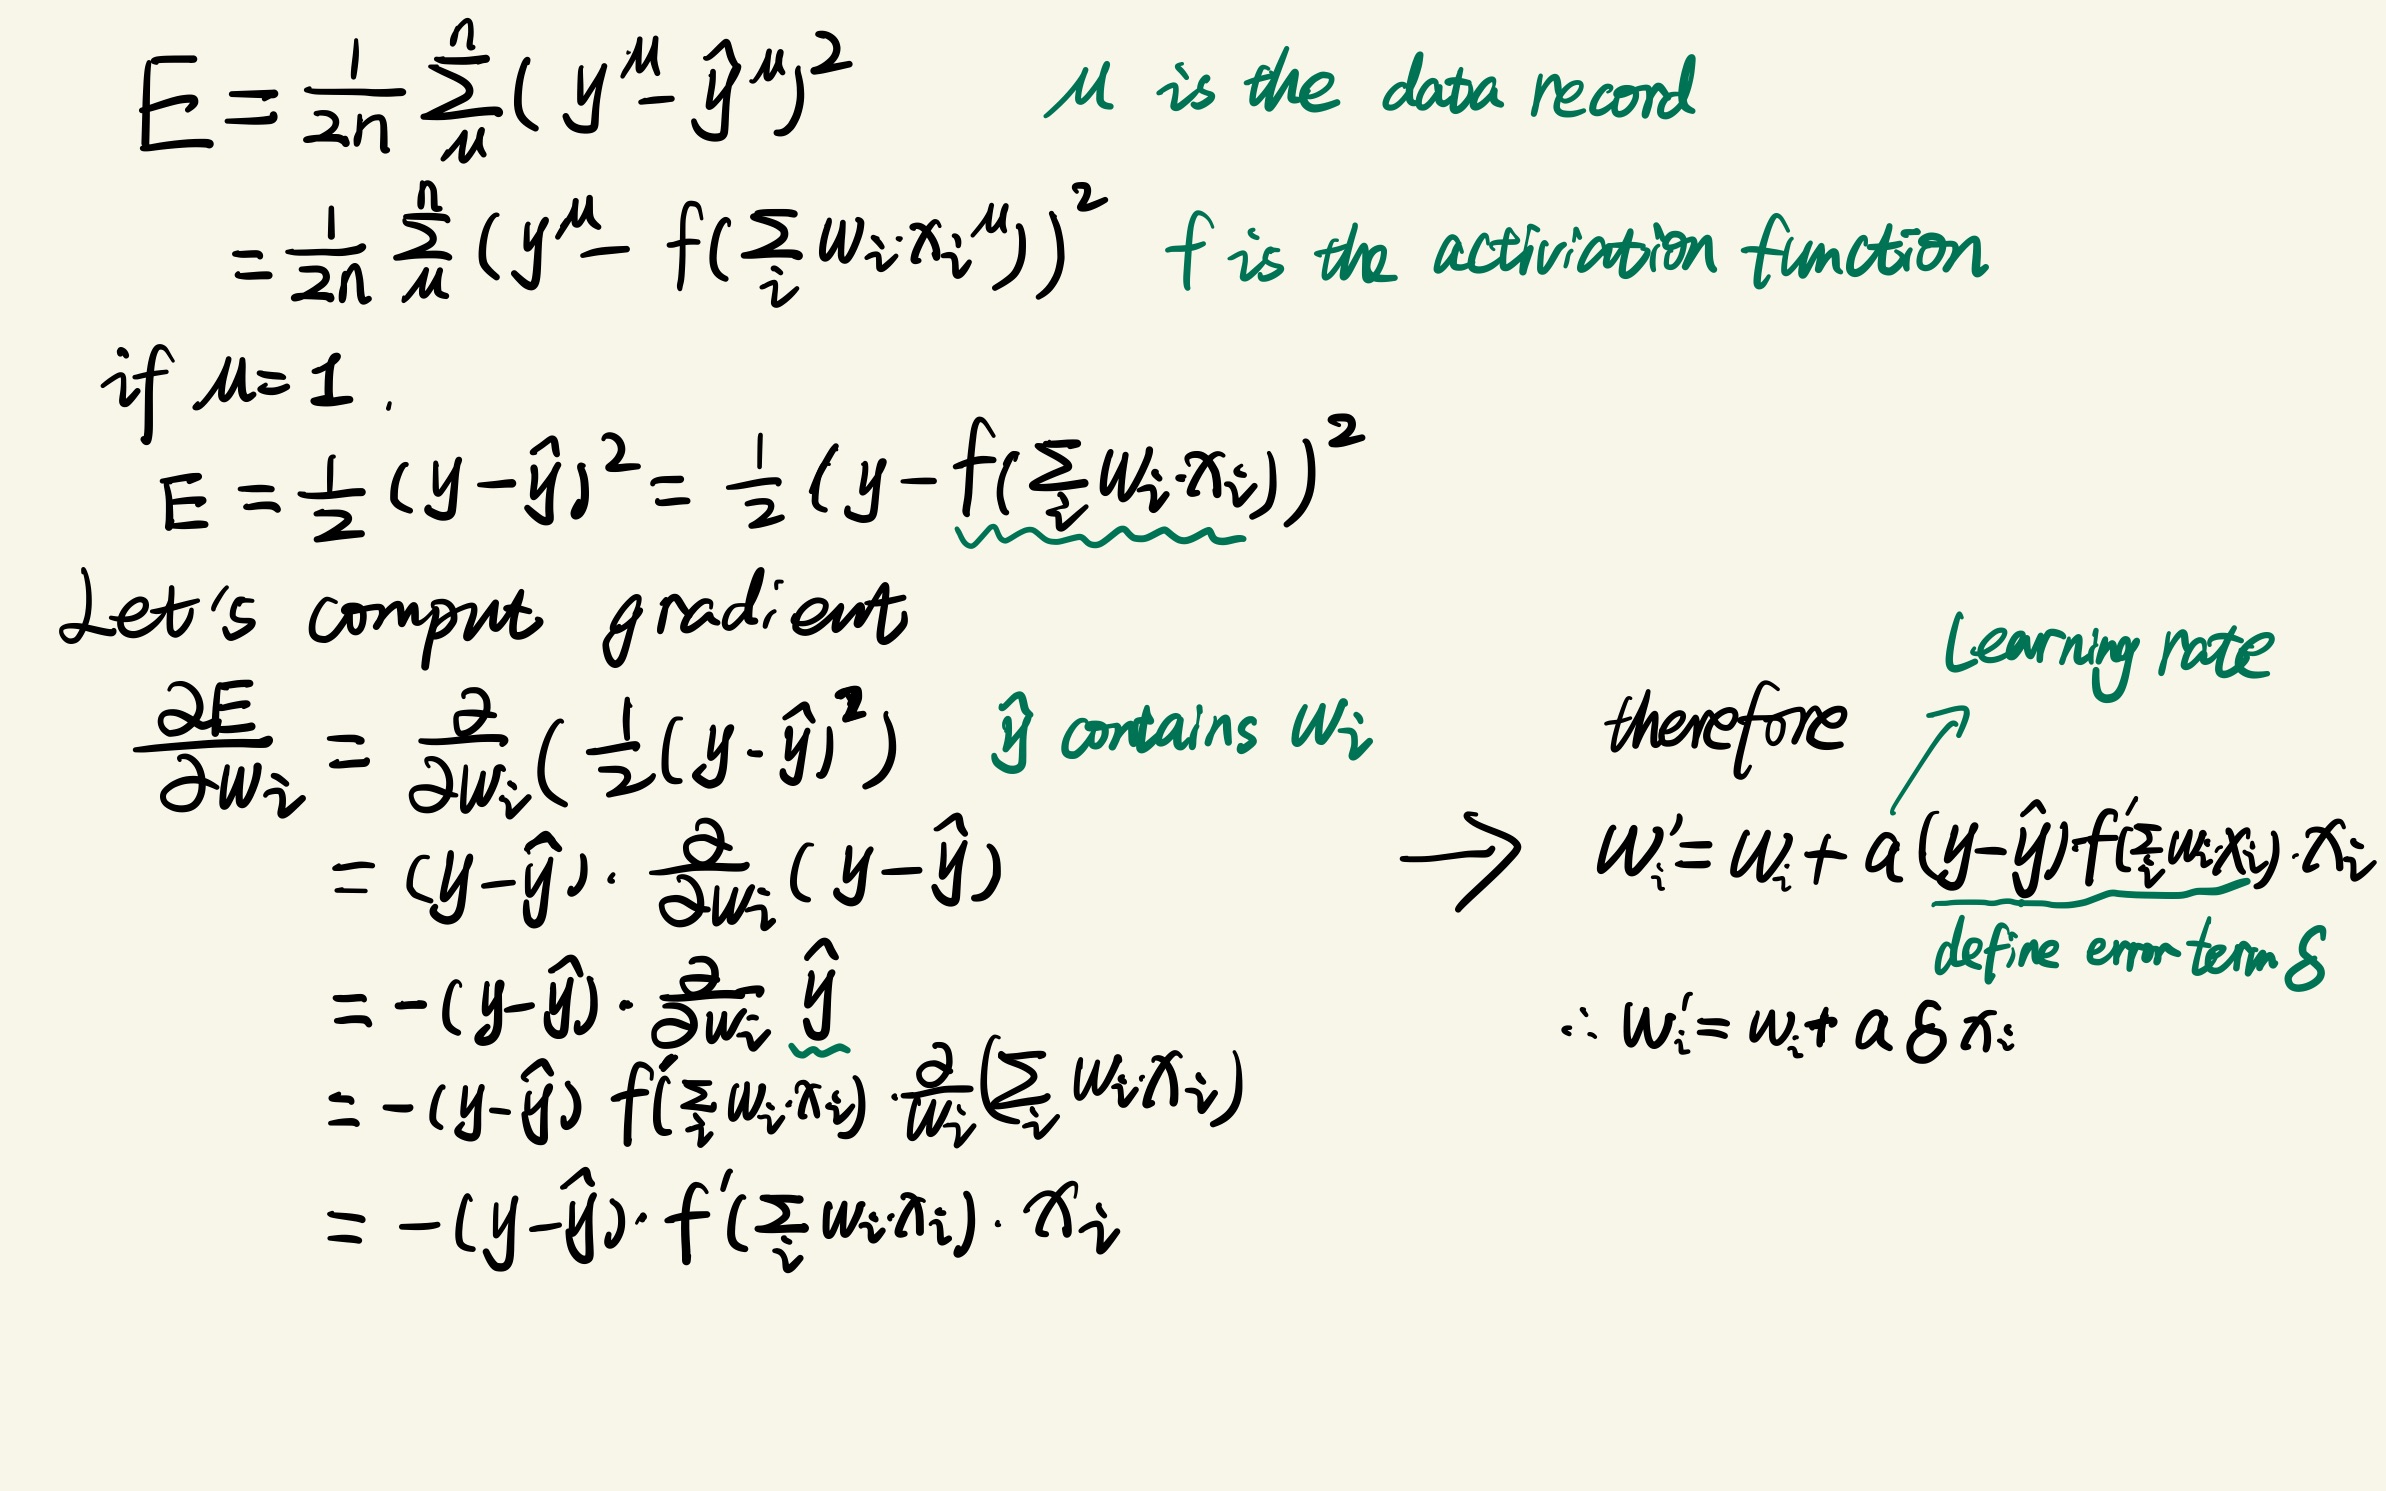 E = 1/2n Σ_μ^n (y^μ - ŷ^μ)² μ is the data record
= 1/2n Σ_μ^n (y^μ - f(Σ_i w_i·x_i^μ))² f is the activiation function
if μ=1.
E = 1/2 (y-ŷ)² = 1/2 (y - f(Σ_i w_i·x_i))²
Let's comput gradient
∂E/∂w_i = ∂/∂w_i (1/2(y-ŷ)²) ŷ contains w_i
= (y-ŷ)·∂/∂w_i (y-ŷ)
= -(y-ŷ)·∂/∂w_i ŷ
= -(y-ŷ) f'(Σ_i w_i·x_i)·∂/w_i (Σ_i w_i·x_i)
= -(y-ŷ)·f'(Σ_i w_i·x_i)·x_i
learning rate
therefore
→ w_i' = w_i + a(y-ŷ)·f'(Σ_i w_i x_i)·x_i
define error term δ
∴ w_i' = w_i + a δ x_i